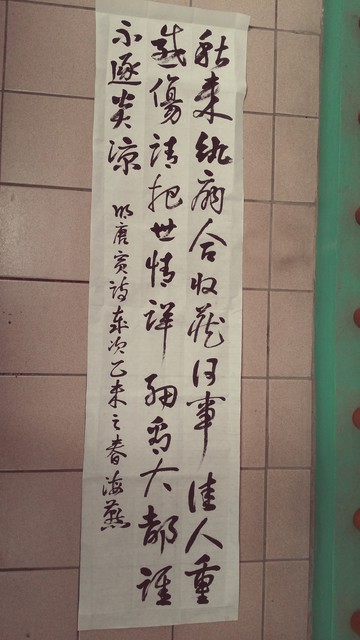 秋來紈扇合收藏何事佳人重
感傷請把世情詳細看大都誰
不逐炎涼
明唐寅詩 歲次乙未之春海燕